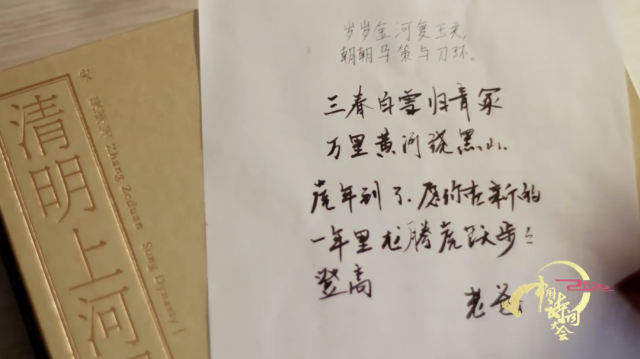 岁岁金河复玉关
朝朝马策与刀环。
三春白雪归青冢
万里黄河绕黑山
虎年到了.愿你在新的
一年里龙腾虎跃步步
登高
老爸
宋 张择端 Zhang Zeduan Song Dynasty
清明上河
中国诗词大会